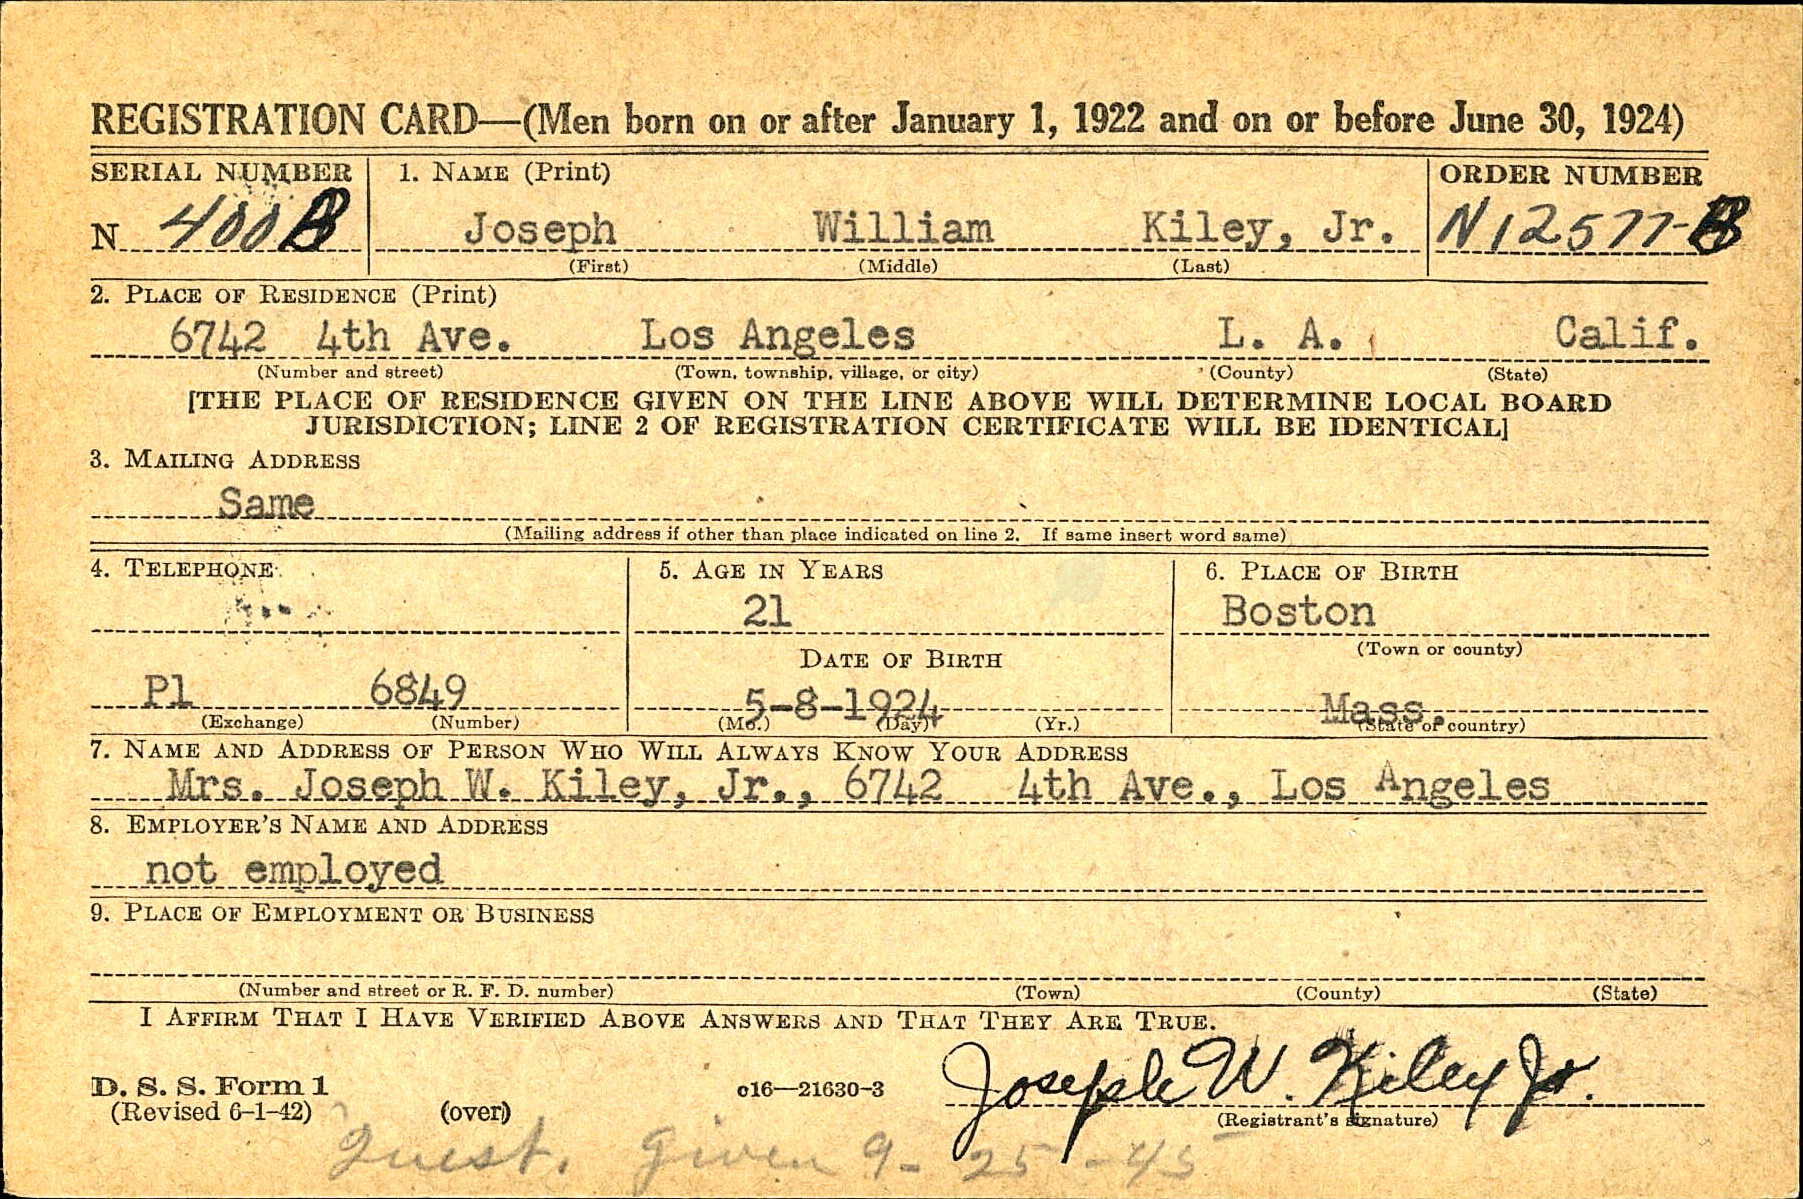 REGISTRATION CARD—(Men born on or after January 1, 1922 and on or before June 30, 1924)
SERIAL NUMBER 1. NAME (Print) ORDER NUMBER
N 400 B Joseph William Kiley, Jr. N12577-B
(First) (Middle) (Last)
2. PLACE OF RESIDENCE (Print)
6742 4th Ave. Los Angeles L. A. Calif.
(Number and street) (Town, township, village, or city) (County) (State)
[THE PLACE OF RESIDENCE GIVEN ON THE LINE ABOVE WILL DETERMINE LOCAL BOARD
JURISDICTION; LINE 2 OF REGISTRATION CERTIFICATE WILL BE IDENTICAL]
3. MAILING ADDRESS
Same
(Mailing address if other than place indicated on line 2. If same insert word same)
4. TELEPHONE 5. AGE IN YEARS 6. PLACE OF BIRTH
21 Boston
DATE OF BIRTH (Town or county)
Pl 6849 5-8-1924 Mass.
(Exchange) (Number) (Mo.) (Day) (Yr.) (State or country)
7. NAME AND ADDRESS OF PERSON WHO WILL ALWAYS KNOW YOUR ADDRESS
Mrs. Joseph W. Kiley, Jr., 6742 4th Ave., Los Angeles
8. EMPLOYER'S NAME AND ADDRESS
not employed
9. PLACE OF EMPLOYMENT OR BUSINESS
(Number and street or R. F. D. number) (Town) (County) (State)
I AFFIRM THAT I HAVE VERIFIED ABOVE ANSWERS AND THAT THEY ARE TRUE.
D. S. S. Form 1 c16—21630-3 Joseph W. Kiley Jr.
(Revised 6-1-42) (over) (Registrant's signature)
Quest. given 9-25-45